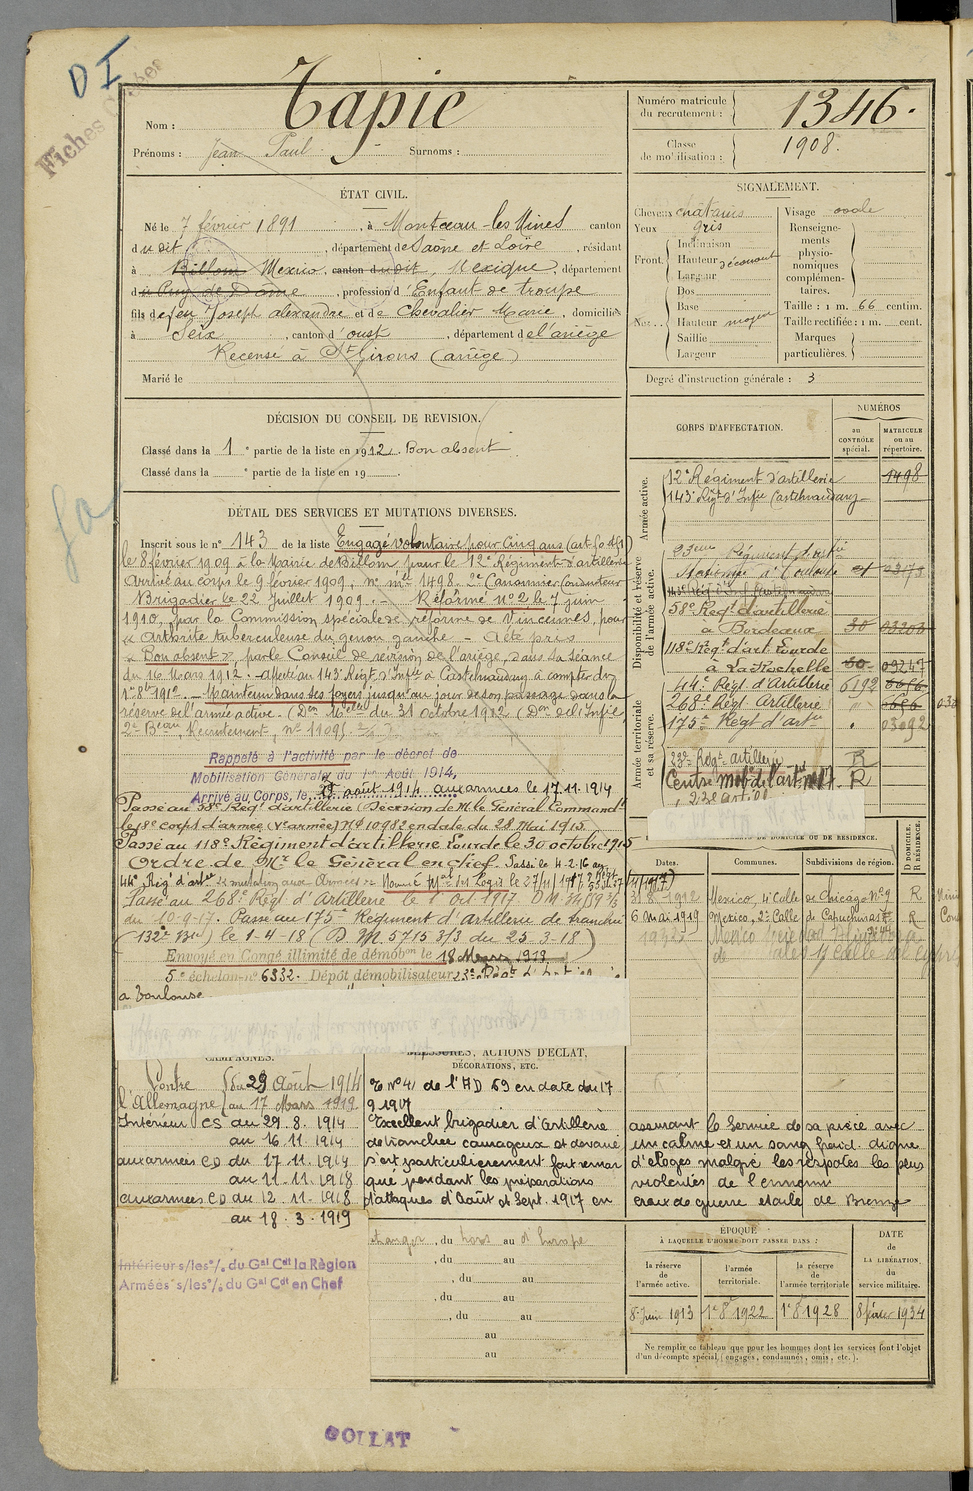 D I
Fiches
Nom : Tapie
Prénoms : Jean Paul Surnoms :
Numéro matricule du recrutement : 1346.
Classe de mobilisation : 1908.
ÉTAT CIVIL.
Né le 7 février 1891, à Montceau-les-Mines canton
du dit, département de Saône et Loire, résidant
à Billom Mexico, canton du dit, Mexique, département
du Puy de Dôme, profession d'Enfant de troupe
fils de feu Joseph alexandre et de Chevalier Marie, domiciliés
à Seix, canton d'oust, département de l'ariège
Recensé à St Girons (ariège)
Marié le
SIGNALEMENT.
Cheveux châtains
Yeux gris
Front. Inclinaison
Hauteur découvert
Largeur
Nez : Dos
Base
Hauteur moyen
Saillie
Largeur
Visage ovale
Renseignements physionomiques complémentaires.
Taille : 1 m. 66 centim.
Taille rectifiée : 1 m. cent.
Marques particulières.
Degré d'instruction générale : 3
DÉCISION DU CONSEIL DE REVISION.
Classé dans la 1e partie de la liste en 1912. Bon absent
Classé dans la e partie de la liste en 19
DÉTAIL DES SERVICES ET MUTATIONS DIVERSES.
Inscrit sous le n° 143 de la liste Engagé volontaire pour cinq ans
le 8 février 1909 à la Mairie de Billom pour le 12e Régiment d'artillerie
Arrivé au corps le 9 février 1909, n° mle 1498. 2e Canonnier Conducteur
Brigadier le 22 Juillet 1909. — Réformé n° 2 le 7 juin
1910, par la Commission spéciale de réforme de Vincennes, pour
« Arthrite tuberculeuse du genou gauche — A été pris
« Bon absent », par le Conseil de révision de l'ariège, dans sa séance
du 16 Mars 1912. — affecté au 143e Régt d'Infie à Castelnaudary à compter du
1er 8bre 1912. — Maintenu dans ses foyers jusqu'au jour de son passage dans la
réserve de l'armée active. (Don du 31 octobre 1912 (Don de l'Infie,
2e Beau, Recrutement, n° 11095.
Rappelé à l'activité par le décret de
Mobilisation Générale du 1er Août 1914,
Arrivé au Corps, le août 1914 aux armées le 17.11.1914
Passé au 58e Régt d'artillerie (Décision de M. le Général Commandt
le 18e corps d'armée, N° 10982 en date du 28 Mai 1915.
Passé au 118e Régiment d'artillerie Lourde le 30 octobre 1915
Ordre de Mr le Général en chef. Passé le 4-2-16 au
44e Régt d'artie mutation aux Armées Nommé Mal des Logis le 27/11/1917
Passé au 268e Régt d'Artillerie le 1er Oct 1917.
du 10-9-17. Passé au 175e Régiment d'Artillerie de tranchée
(132e Bie) le 1-4-18 (D.M. 5715 3/3 du 25-3-18)
Envoyé en Congé illimité de démobon le 18 Mars 1919.
5e échelon n° 6332. Dépôt démobilisateur 23e Régt d'Artillerie
à Toulouse
CORPS D'AFFECTATION.
NUMÉROS
au CONTRÔLE spécial.
MATRICULE ou au répertoire.
Armée active.
12e Régiment d'artillerie 1498
143e Régt d'Infie Castelnaudary
Disponibilité et réserve de l'armée active.
23ème Régiment d'artie
58e Régt d'artillerie
à Bordeaux 30 03203
118e Régt d'art Lourde
à La Rochelle 60 09247
44e Régt d'Artillerie 6192
268e Régt Artillerie
175e Régt d'artie 03092
Armée territoriale et sa réserve.
23e Régt artillerie R
Centre mobon de l'artie n° 17. R
DE DOMICILE OU DE RÉSIDENCE.
Dates. Communes. Subdivisions de région. D DOMICILE. R RÉSIDENCE.
1912 Mexico, 4e Calle de Chicago n° 9 R
6 Mai 1919 Mexico, 2e Calle de Capuchinas R
CAMPAGNES.
Contre l'Allemagne du 29 Août 1914
au 17 Mars 1919
Intérieur CS du 29.8.1914
au 16.11.1914
aux armées CD du 17.11.1914
au 11.11.1918
aux armées CD du 12.11.1918
au 18.3.1919
Intérieur s/les °/₀ du Gal Cdt la Région
Armées s/les °/₀ du Gal Cdt en Chef
BLESSURES, ACTIONS D'ÉCLAT, DÉCORATIONS, ETC.
O N° 41 de l'AD 69 en date du 17
9 1917
Excellent brigadier d'Artillerie
de tranchée courageux et dévoué
s'est particulièrement fait remar
qué pendant les préparations
d'attaques d'Août et Sept. 1917 en
assurant le service de sa pièce avec
un calme et un sang froid digne
d'éloges malgré les ripostes les plus
violentes de l'ennemi
croix de guerre étoile de Bronze
étranger, du hors au d'Europe
, du au
, du au
, du au
, du au
au
au
ÉPOQUE
À LAQUELLE L'HOMME DOIT PASSER DANS :
la réserve de l'armée active.
l'armée territoriale.
la réserve de l'armée territoriale
DATE de LA LIBÉRATION du service militaire.
8 Juin 1913 1er 8 1922 1er 8 1928 8 février 1934
Ne remplir ce tableau que pour les hommes dont les services font l'objet
d'un décompte spécial (engagés, condamnés, omis, etc.).
GOLLAT